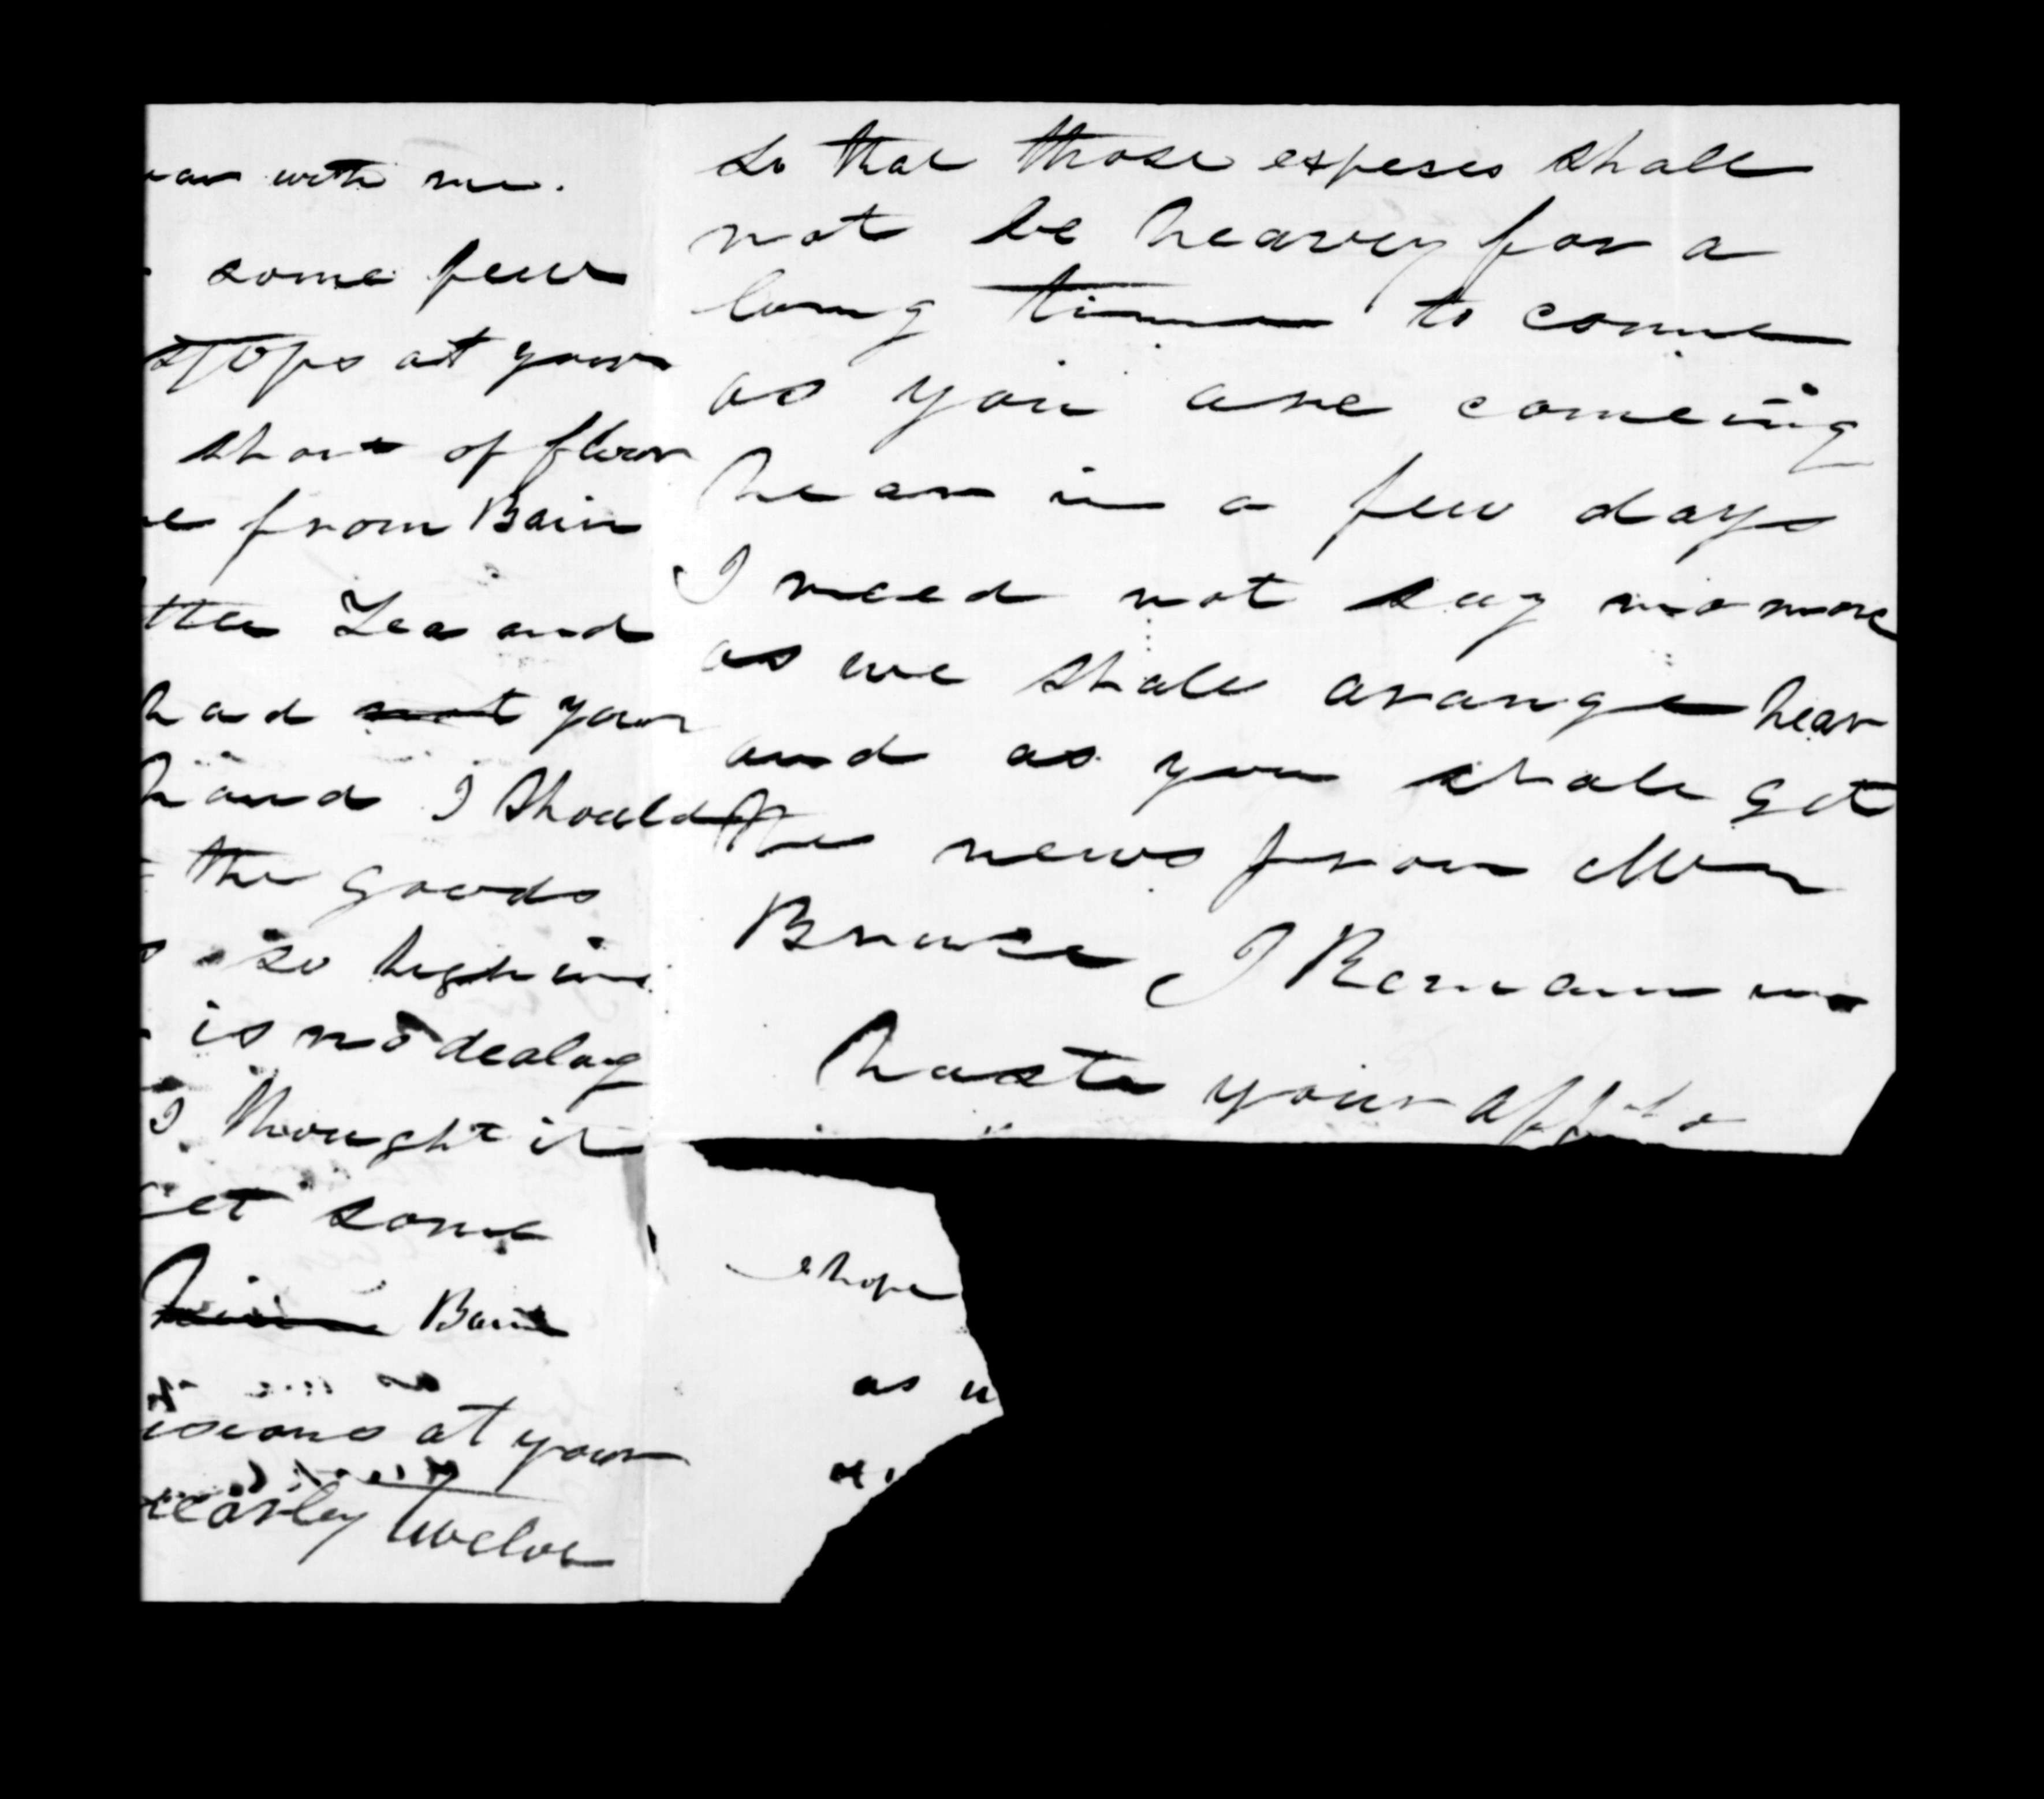 with me.
some few
stops at your
short of flour
from Bain
Tea and
had not your
hand I should
the goods
so high in
is no dealag
I thought it
get some
Bain
at your
twelve
so that those expeses shall
not be heavey for a
long time to come
as you are comeing
hear in a few days
I need not say no more
as we shall arange hear
and as you shale get
the news from Mr
Bruce I Remain in
haste your aff
hope
as